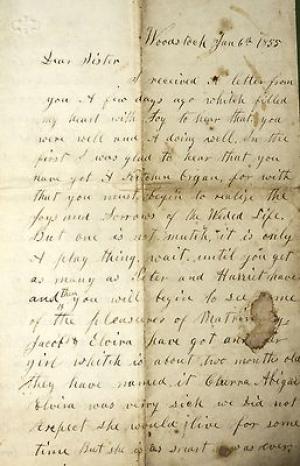 Woodstock Jan 6th 1855
Dear Sister
I received A letter from
you A few days ago whitch filled
my heart with Joy to hear that you
were well and A doing well. In the
first I was glad to hear that you
have got A Organ, for with
that you must begin to realize the
Joys and Sorrows of the Weded Life.
But one is not mutch, it is only
A play thing. wait until you get
as many as Peter and Harriet have
and then you will begin to see some
of the pleasures of
Jacob & Elvira have got
girl whitch is about two months old
they have named it Abigal
Elvira was verry sick we did not
expect she would live for some
time But she is as smart as ever,